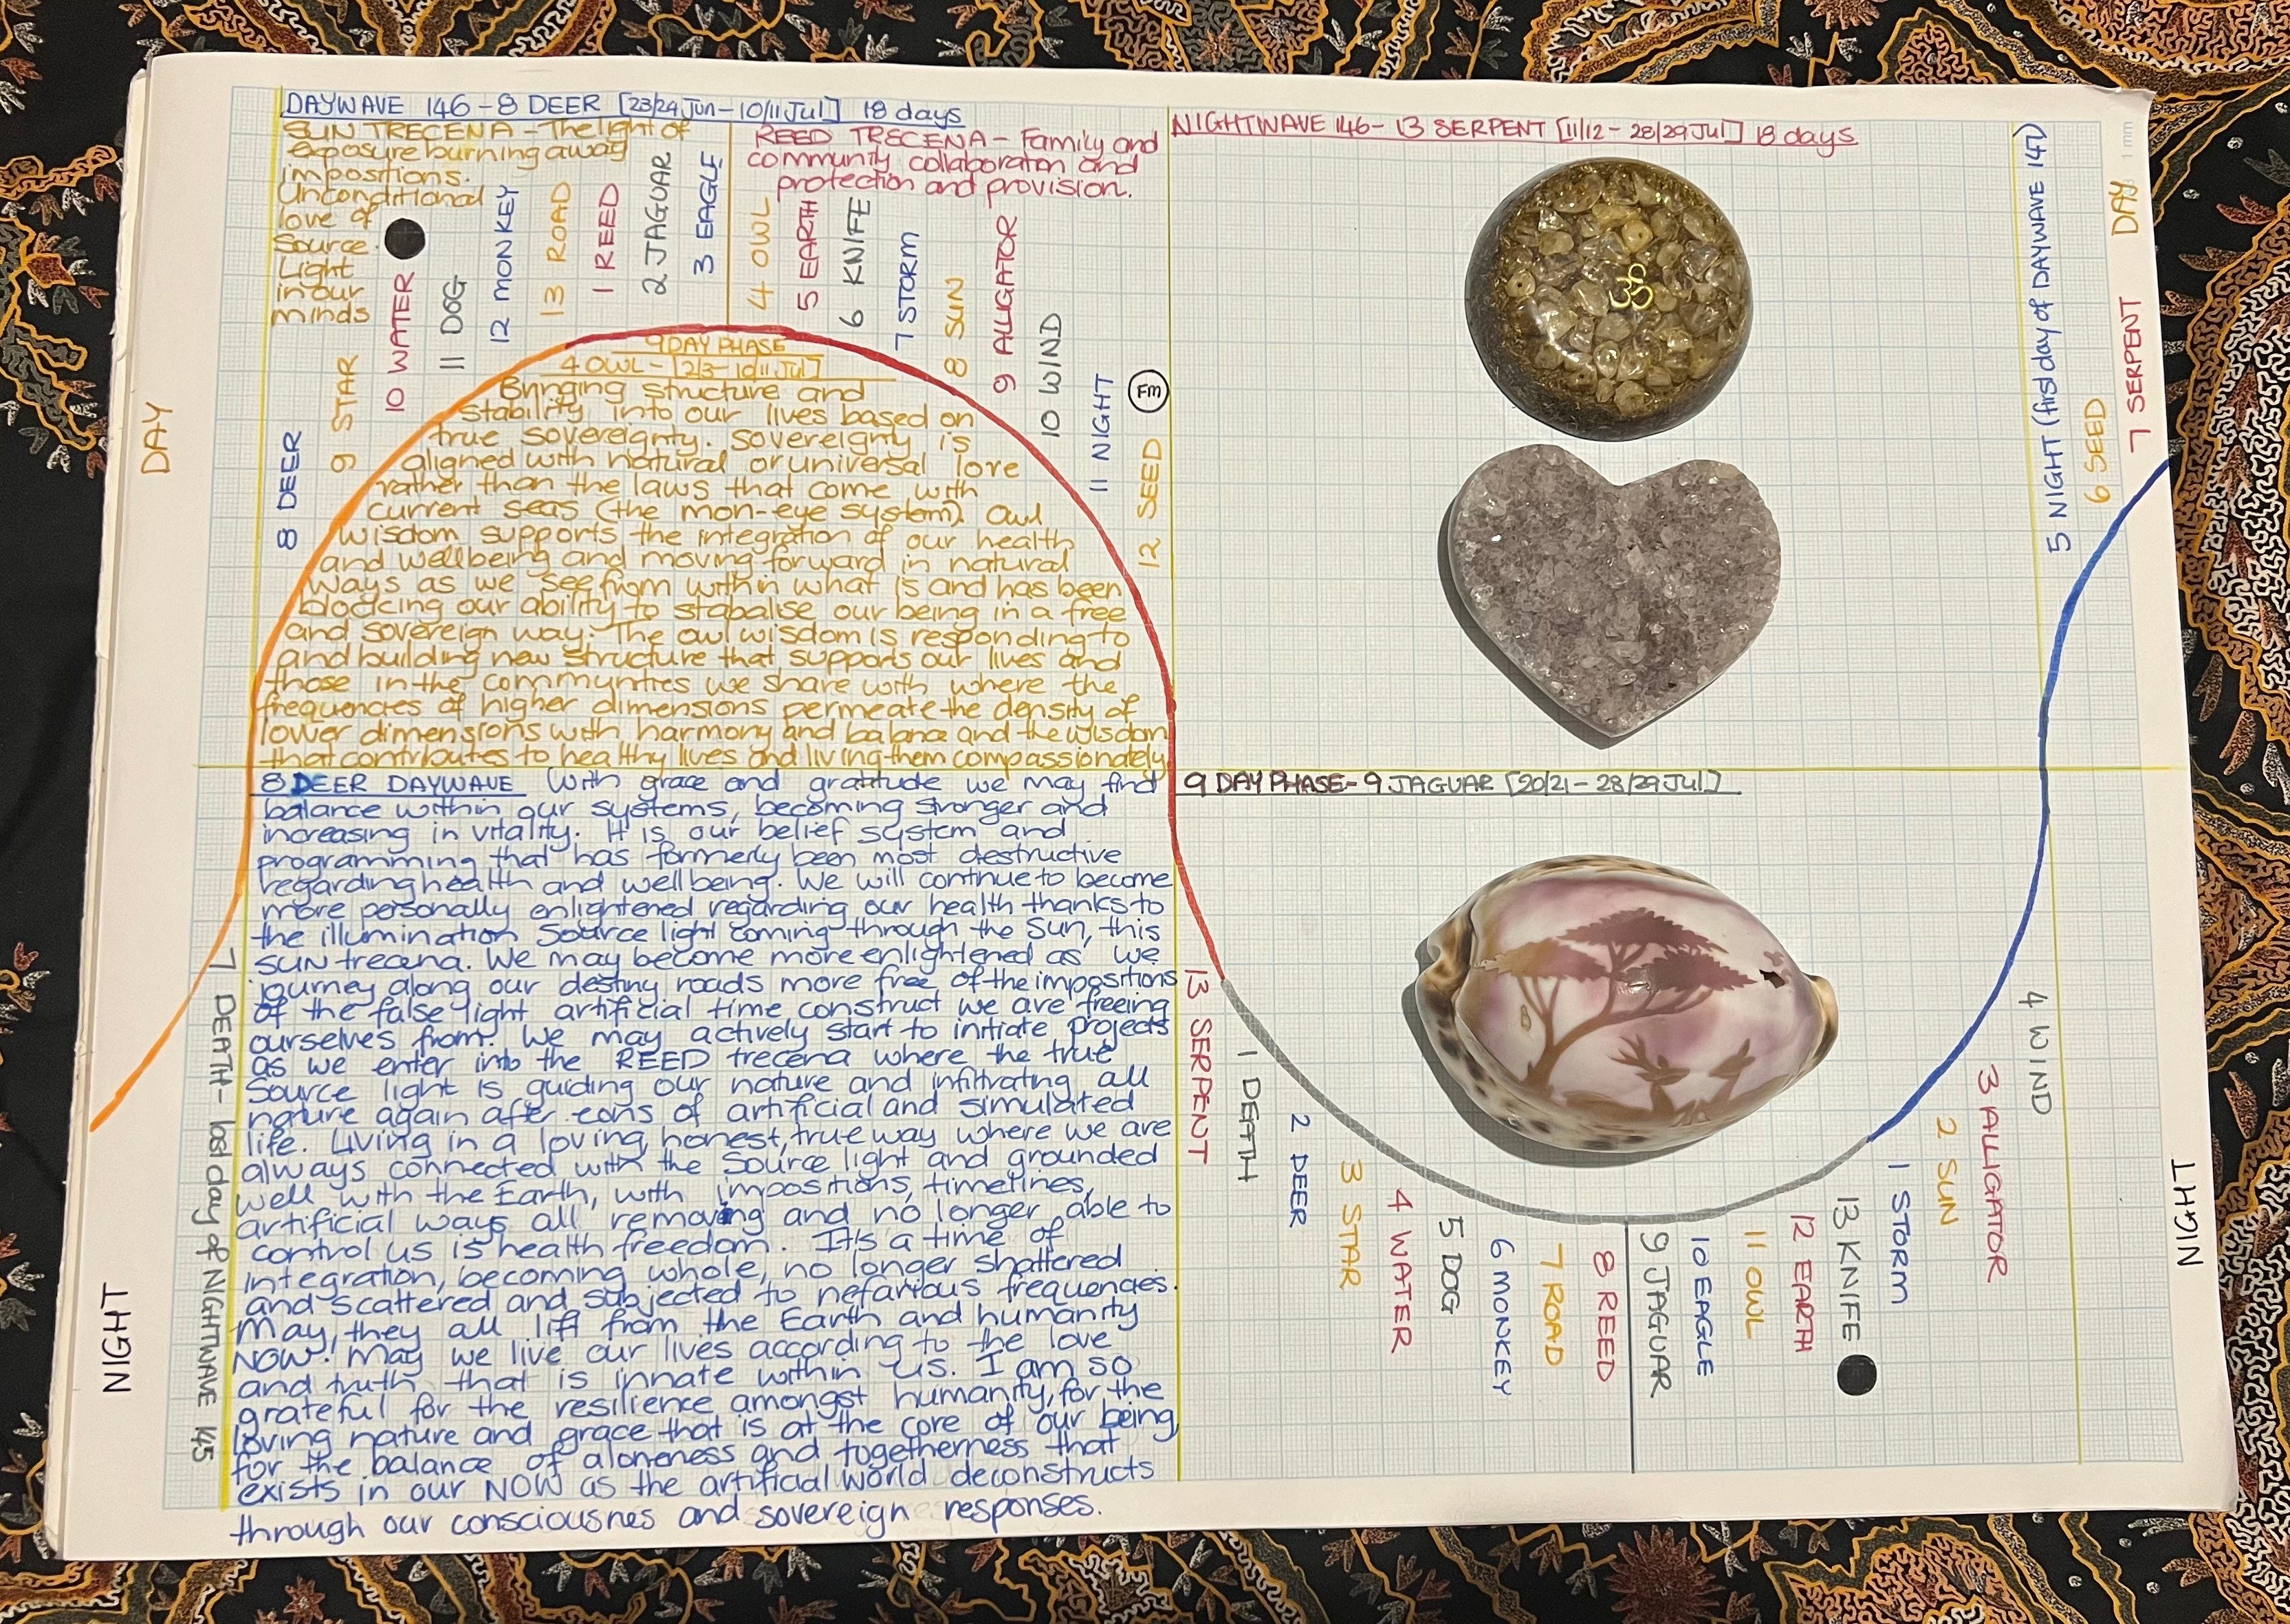 DAYWAVE 146 - 8 DEER [23/24 Jun - 10/11 Jul] 18 days
SUN TRECENA - The light of
exposure burning away
impositions.
Unconditional
love of
Source
Light
in our
minds
REED TRECENA - Family and
community collaboration and
protection and provision.
DAY
8 DEER
9 STAR
10 WATER
11 DOG
12 MONKEY
13 ROAD
1 REED
2 JAGUAR
3 EAGLE
4 OWL
5 EARTH
6 KNIFE
7 STORM
8 SUN
9 ALLIGATOR
10 WIND
11 NIGHT
12 SEED
FM
9 DAY PHASE
4 OWL - [2/3 - 10/11 Jul]
Bringing structure and
stability into our lives based on
true sovereignty. Sovereignty is
aligned with natural or universal lore
rather than the laws that come with
current seas (the mon-eye system). Owl
wisdom supports the integration of our health
and wellbeing and moving forward in natural
ways as we see from within what is and has been
blocking our ability to stabalise our being in a free
and sovereign way. The owl wisdom is responding to
and building new structure that supports our lives and
those in the communities we share with where the
frequencies of higher dimensions permeate the density of
lower dimensions with harmony and balance and the wisdom
that contributes to healthy lives and living them compassionately
8 DEER DAYWAVE With grace and gratitude we may find
balance within our systems, becoming stronger and
increasing in vitality. It is our belief system and
programming that has formerly been most destructive
regarding health and wellbeing. We will continue to become
more personally enlightened regarding our health thanks to
the illumination Source light coming through the Sun, this
SUN trecena. We may become more enlightened as we
journey along our destiny roads more free of the impositions
of the false light artificial time construct we are freeing
ourselves from. We may actively start to initiate projects
as we enter into the REED trecena where the true
Source light is guiding our nature and infiltrating all
nature again after eons of artificial and simulated
life. Living in a loving, honest, true way where we are
always connected with the Source light and grounded
well with the Earth, with impositions, timelines,
artificial ways all removing and no longer able to
control us is health freedom. It's a time of
integration, becoming whole, no longer shattered
and scattered and subjected to nefarious frequencies.
May they all lift from the Earth and humanity
NOW! May we live our lives according to the love
and truth that is innate within us. I am so
grateful for the resilience amongst humanity, for the
loving nature and grace that is at the core of our being,
for the balance of aloneness and togetherness that
exists in our NOW as the artificial world deconstructs
through our consciousnes and sovereign responses.
7 DEATH - last day of NIGHTWAVE 145
NIGHT
NIGHTWAVE 146 - 13 SERPENT [11/12 - 28/29 Jul] 18 days
9 DAY PHASE - 9 JAGUAR [20/21 - 28/29 Jul]
13 SERPENT
1 DEATH
2 DEER
3 STAR
4 WATER
5 DOG
6 MONKEY
7 ROAD
8 REED
9 JAGUAR
10 EAGLE
11 OWL
12 EARTH
13 KNIFE
1 STORM
2 SUN
3 ALLIGATOR
4 WIND
5 NIGHT (first day of DAYWAVE 147)
6 SEED
7 SERPENT
DAY
1 mm
NIGHT
ॐ